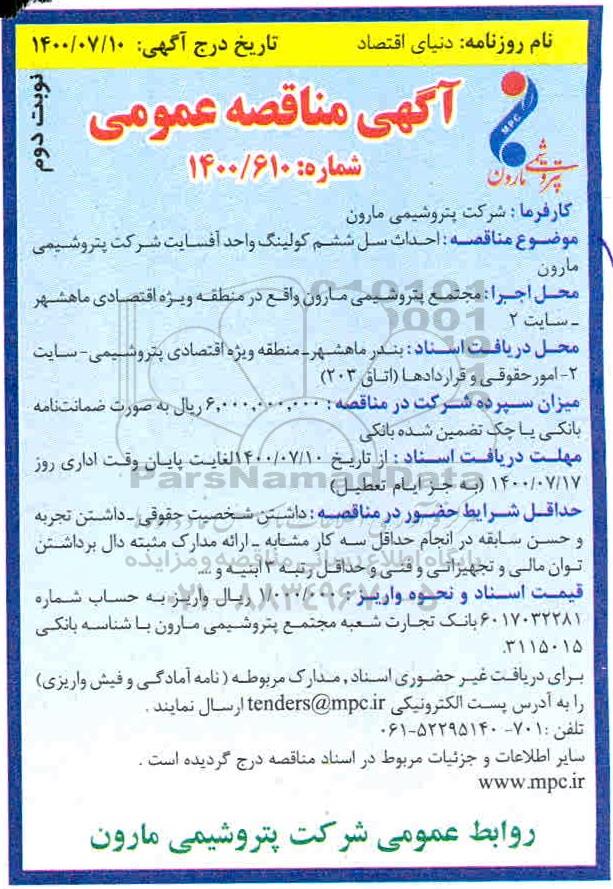 نام روزنامه: دنیای اقتصاد تاریخ درج آگهی: ۱۴۰۰/۰۷/۱۰
نوبت دوم
MPC
پتروشیمی مارون
آگهی مناقصه عمومی
شماره: ۱۴۰۰/۶۱۰
کارفرما : شرکت پتروشیمی مارون
موضوع مناقصه : احداث سل ششم کولینگ واحد آفسایت شرکت پتروشیمی
مارون
محل اجرا : مجتمع پتروشیمی مارون واقع در منطقه ویژه اقتصادی ماهشهر
ـ سایت ۲
محل دریافت اسناد : بندر ماهشهر ـ منطقه ویژه اقتصادی پتروشیمی - سایت
۲- امور حقوقی و قراردادها (اتاق ۲۰۳)
میزان سپرده شرکت در مناقصه : ۶,۰۰۰,۰۰۰,۰۰۰ ریال به صورت ضمانت‌نامه
بانکی یا چک تضمین شده بانکی
مهلت دریافت اسناد : از تاریخ ۱۴۰۰/۰۷/۱۰ لغایت پایان وقت اداری روز
۱۴۰۰/۰۷/۱۷ (به جز ایام تعطیل)
حداقل شرایط حضور در مناقصه : داشتن شخصیت حقوقی ـ داشتن تجربه
و حسن سابقه در انجام حداقل سه کار مشابه ـ ارائه مدارک مثبته دال برداشتن
توان مالی و تجهیزاتی و فنی و حداقل رتبه ۳ ابنیه و ....
قیمت اسناد و نحوه واریز : ۱/۰۰۰/۰۰۰ ریال واریز به حساب شماره
۶۰۱۷۰۳۲۲۸۱ بانک تجارت شعبه مجتمع پتروشیمی مارون با شناسه بانکی
۳۱۱۵۰۱۵.
برای دریافت غیر حضوری اسناد , مدارک مربوطه ( نامه آمادگی و فیش واریزی)
را به آدرس پست الکترونیکی tenders@mpc.ir ارسال نمایند .
تلفن : ۷۰۱- ۰۶۱-۵۲۲۹۵۱۴۰
سایر اطلاعات و جزئیات مربوط در اسناد مناقصه درج گردیده است .
www.mpc.ir
روابط عمومی شرکت پتروشیمی مارون
ParsNamadData
پایگاه اطلاع رسانی مناقصه و مزایده